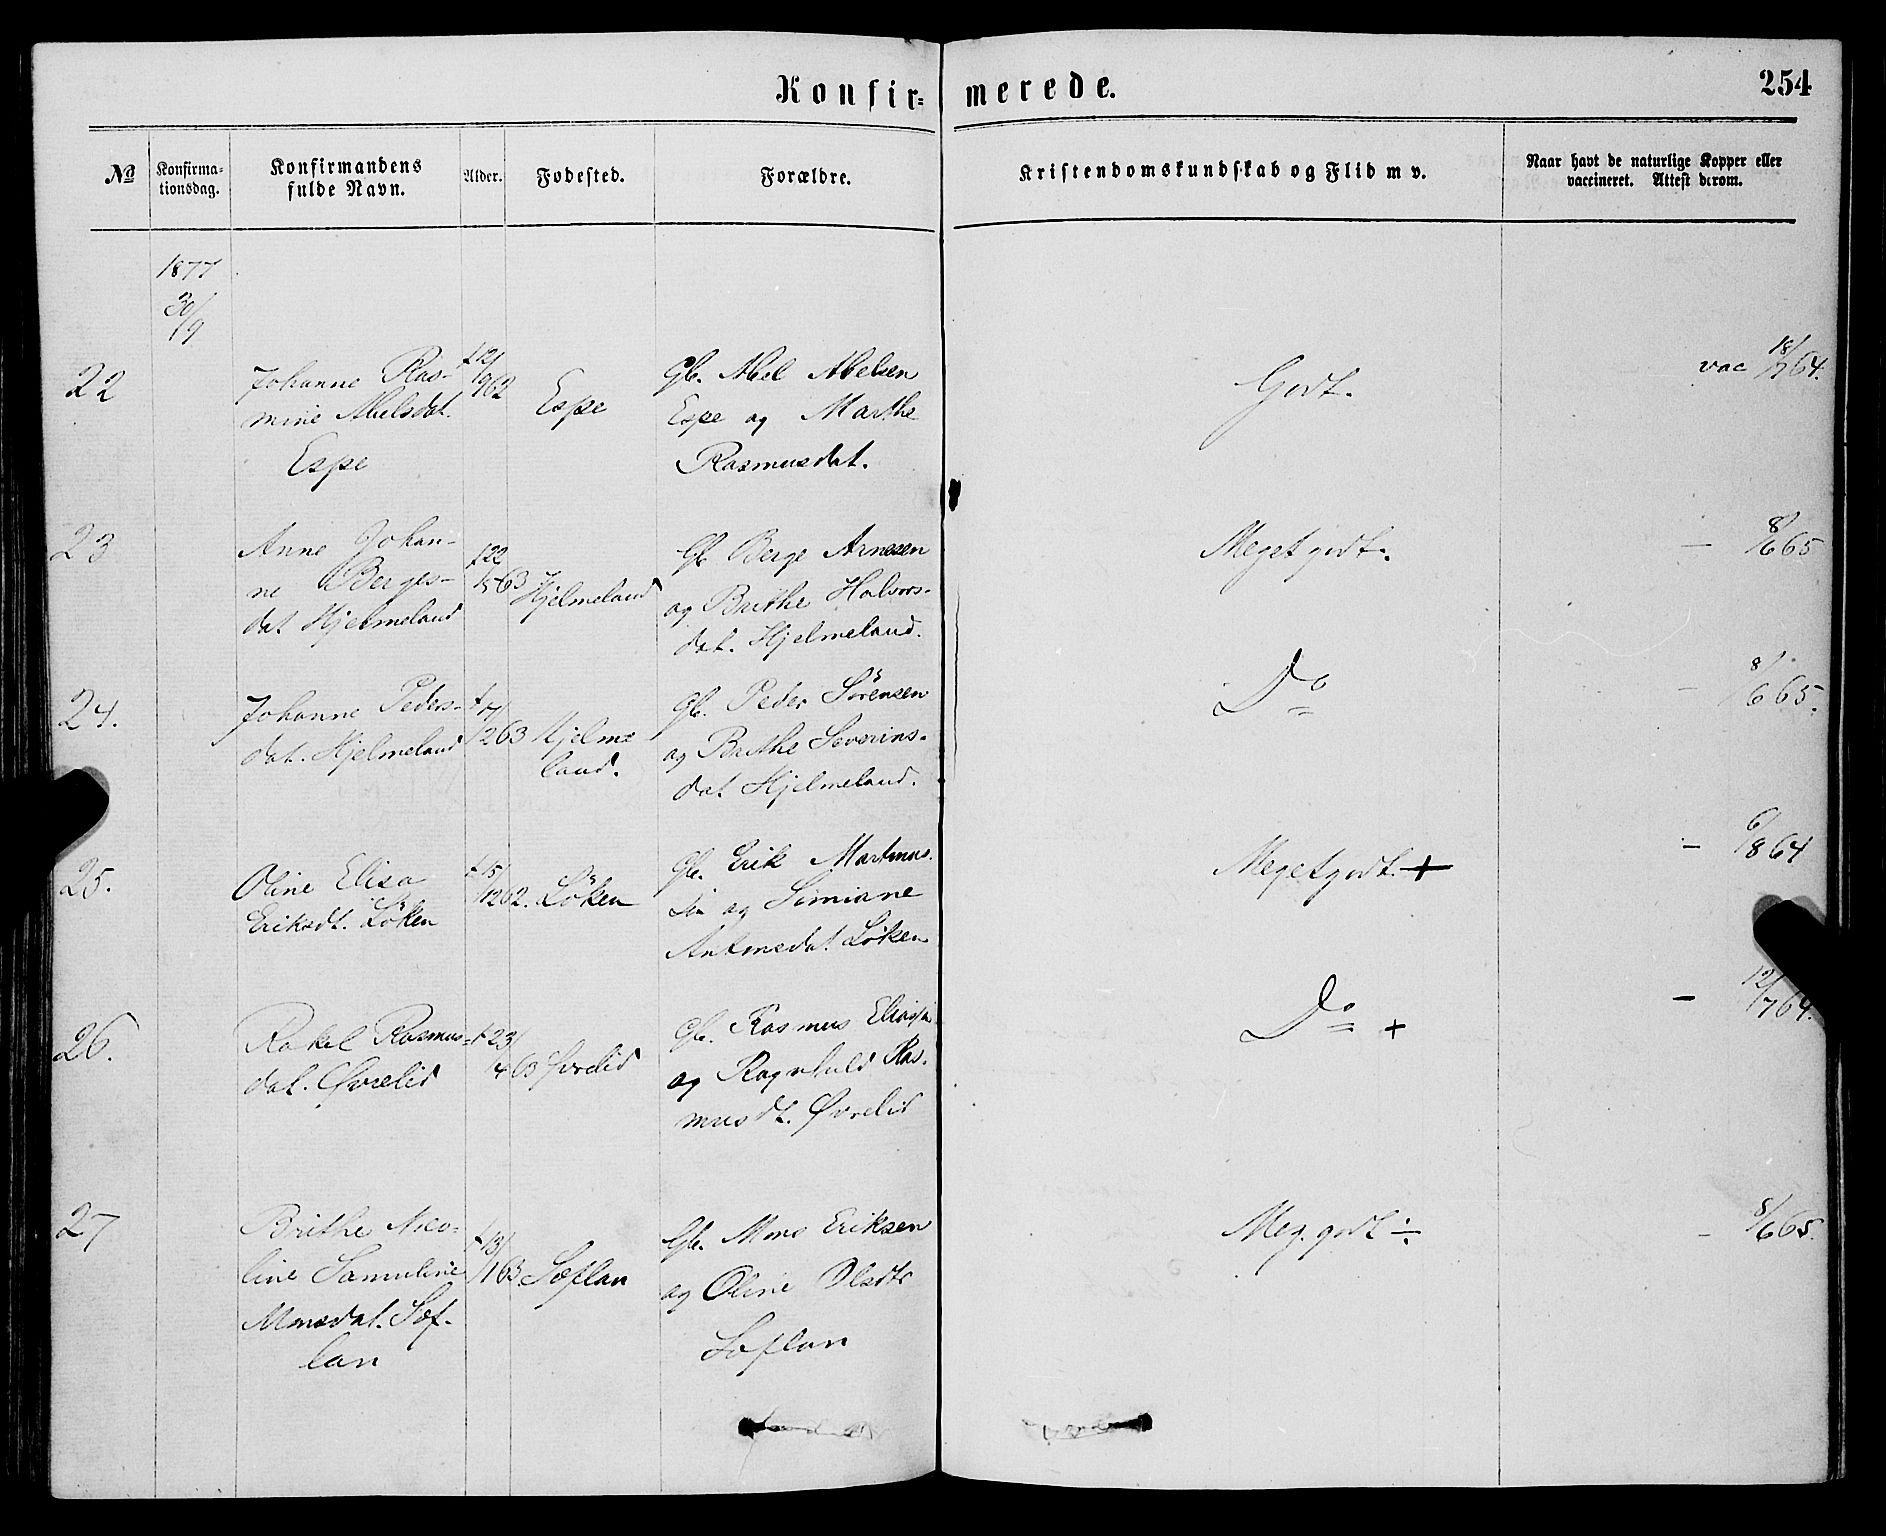 Konfirmerede.
254
No
Konfirma-
tionsdag.
Konfirmandens
fulde Navn.
Alder.
Fødested.
Forældre.
Kristendomskundskab og Flid m v.
Naar havt de naturlige Kopper eller
vaccineret. Attest derom.
1877
30/9
22
Johanne Ras-
mine Abelsdat.
Espe
f 12/9 62
Espe
Gb. Abel Abelsen
Espe og Marthe
Rasmusdat.
Godt.
vac 18/7 64.
23
Anne Johan-
ne Berges-
dat Hjelmeland
f 22/5 63
Hjelmeland
Gb. Berge Arnesen
og Brithe Halvors-
dat. Hjelmeland.
Meget godt.
— 8/6 65
24.
Johanne Peders-
dat. Hjelmeland
f 17/2 63
Hjelme
land.
Gb. Peder Sörensen
og Brithe Severins-
dat Hjelmeland.
Do
— 8/6 65.
25.
Oline Elisa
Eriksdt. Löken
f 15/12 62.
Löken
Gb. Erik Martinus.
og Simiane
Antonsdat Löken
Meget godt. +
— 6/8 64
26.
Rakel Rasmus-
dat. Øvrelid
f 23/4 63
Øvrelid
Gb. Rasmus
og Ragnhild Ras-
musdt. Øvrelid
Do +
— 12/7 64.
27
Brithe Nico-
line Samuline
Monsdat. Sæf-
lan
f 13/1 63
Sæflan
Gb. Mons Eriksen
og Oline Olsdtr
Sæflan
Meg. godt ÷
— 8/6 65.